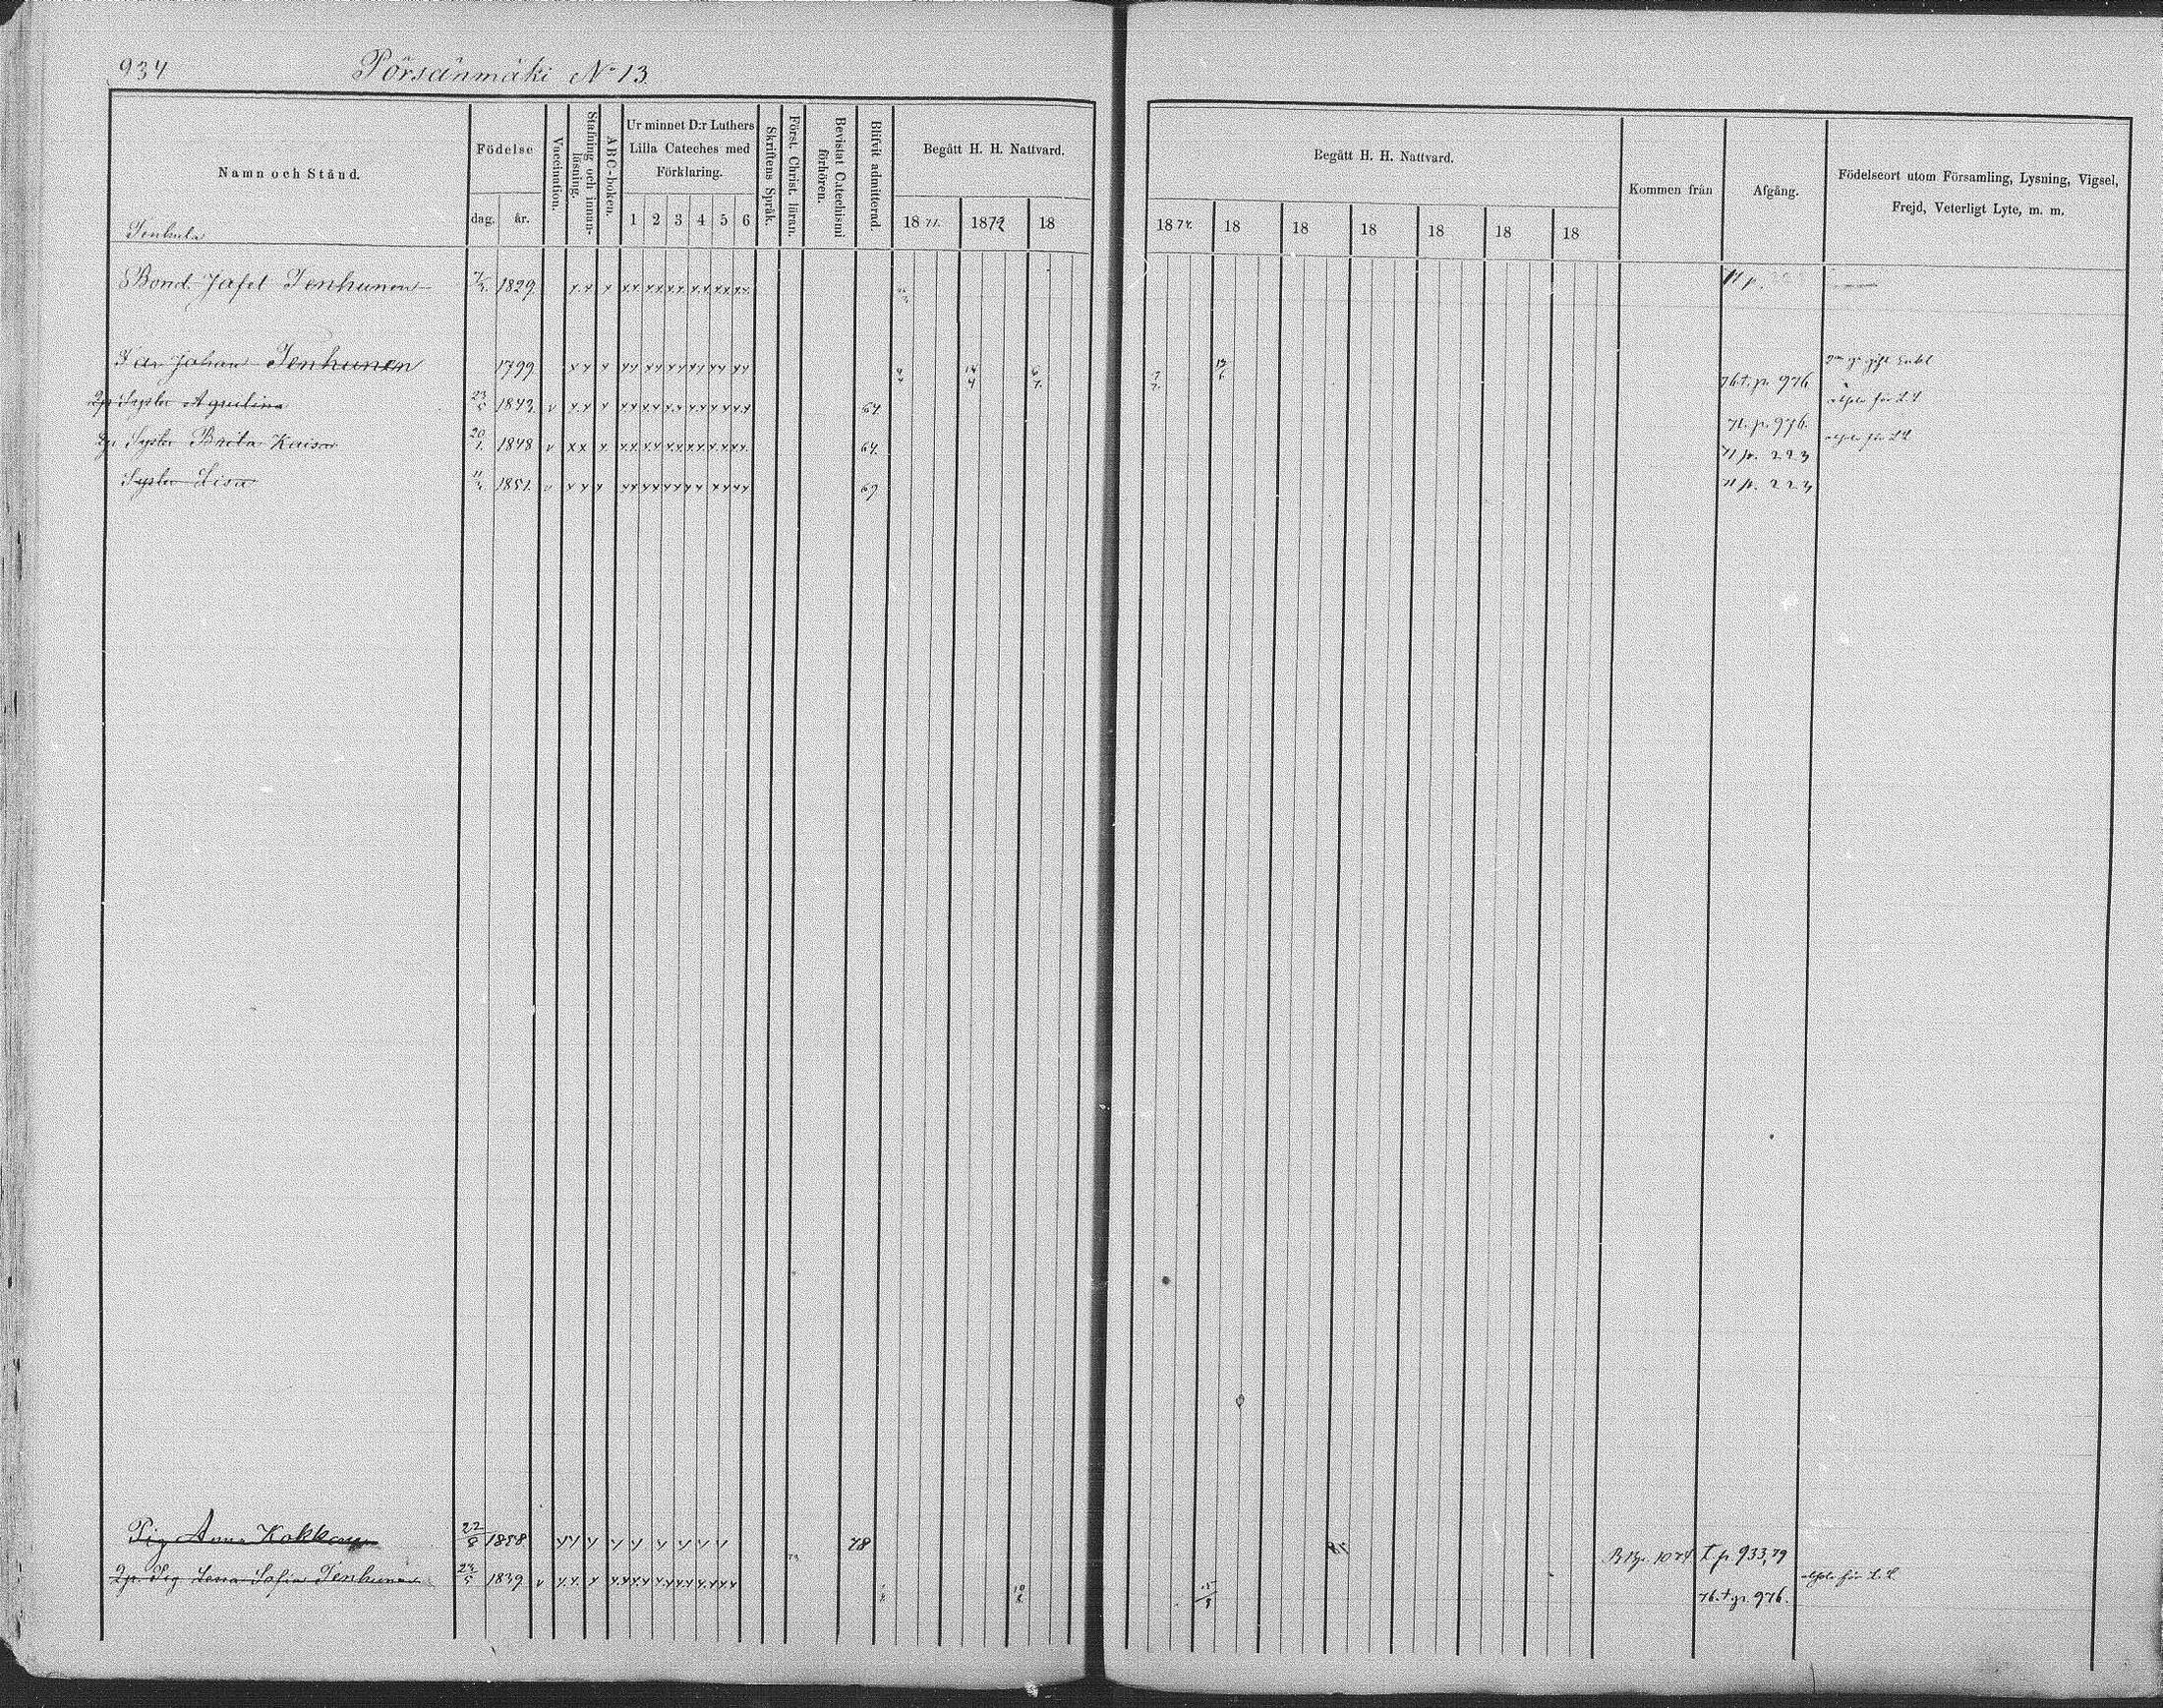 934 Pörsänmäki No 13.
Namn och Stånd.
Födelse
dag. år.
Vaccination.
Stafning och innan-läsning.
ABC-boken.
Ur minnet D:r Luthers
Lilla Cateches med
Förklaring.
1 2 3 4 5 6
Skriftens Språk.
Först. Christ. läran.
Bevistat Catechismi förhören.
Blifvit admitterad.
Begått H. H. Nattvard.
18 71. 1872 18
Begått H. H. Nattvard.
18 74. 18 18 18 18 18 18
Kommen från
Afgång.
Födelseort utom Församling, Lysning, Vigsel,
Frejd, Veterligt Lyte, m. m.
Tenhula
Bond. Jafet Tenhunen 1829. x x x xx xx xx xx xx xx 71 p.
Far Johan Tenhunen 1799 x x x xx xx xx xx xx xx 14/4 13/6 76. t. p. 976
2p Syster Aqvilina 23/5 1843. v x x x xx xx xx xx xx xx 64. 71. p. 976.
2p Syster Brita Kaisa 20/1. 1848 v x x x xx xx xx xx xx xx 64. 71 p. 223
Syster Lisa 1851. v x x x xx xx xx xx xx xx 69 71 p. 223
Pig Anna Kokkonen 22/8 1858 x x x x x x x x x 78 B. p. 1074 t. p. 933, 79
2p. Pig Lena Sofia Tenhunen 23/5 1839 v x x x xx xx xx xx xx xx 10/6 15/8 76. t. p. 976.